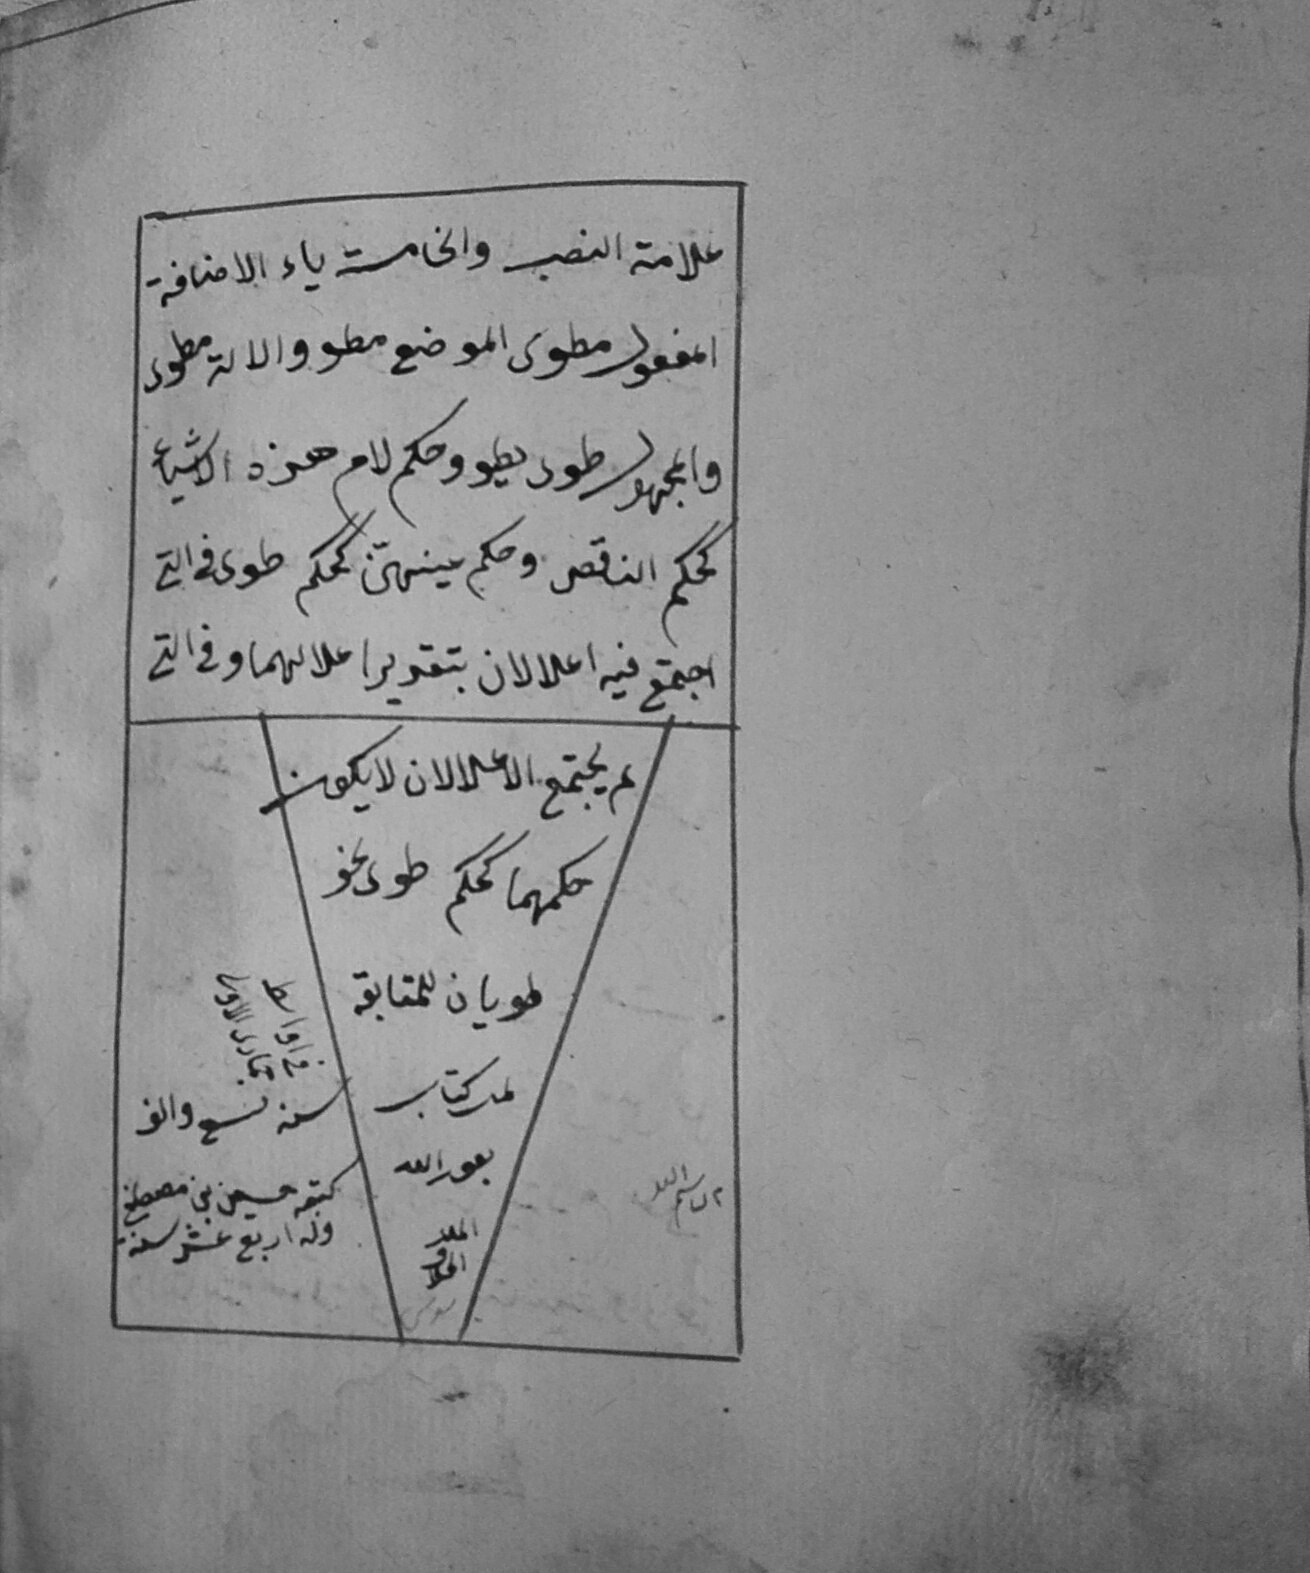 علامة النصب والخامسة ياء الاضافة
المفعول مطوى الموضع مطوو والالة مطوى
والمجهول طوى يطوو وحكم لام هذه الاشياء
كحكم الناقص وحكم عينهنّ كحكم طوى فى التى
اجتمع فيه اعلالان بتقدير اعلالهما وفى التى
لم يجتمع الاعلالان لا يكون
حكمهما كحكم طوى نحو
طويان للمتابعة
كتاب
بعون الله
الملك
فى اواسط
جمادى الاول
سنه تسع والف
كتبه حسين بن مصطفى
وله اربع عشر سنة